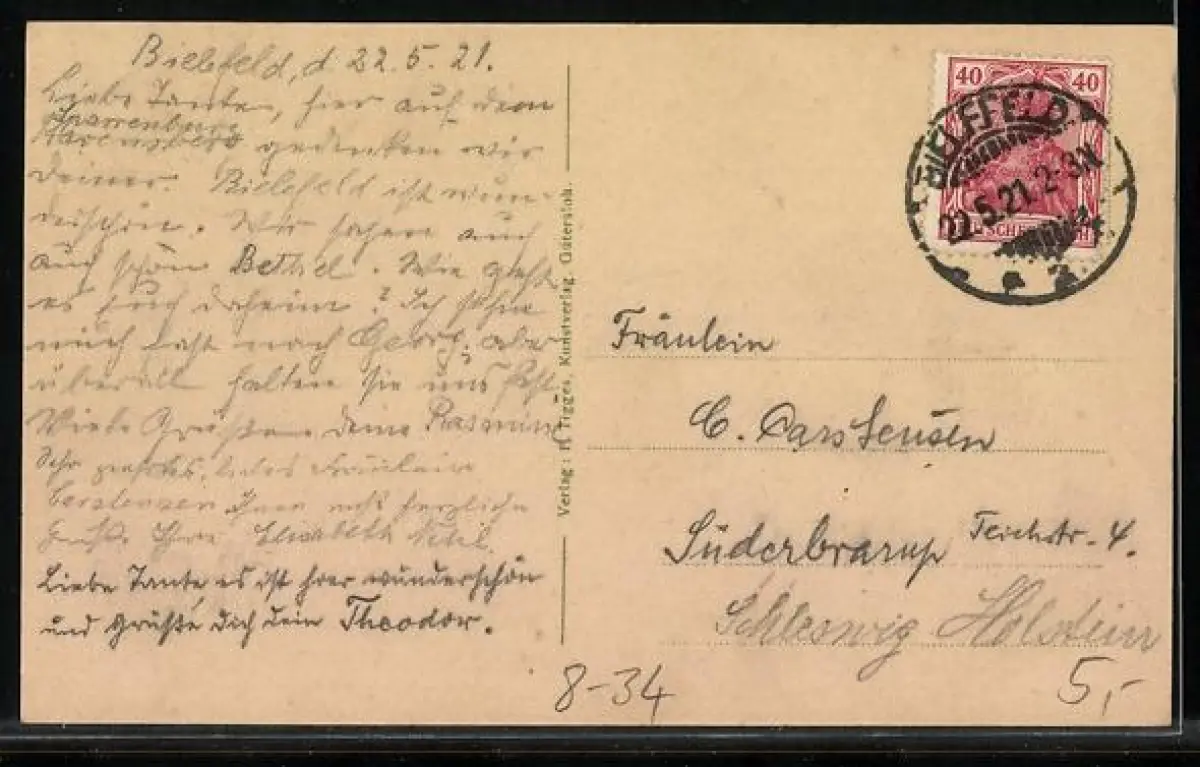 Bielefeld, d 22.5.21.
Liebe Tante, hier auf dem
Sparrenburg
gedenken wir
Deiner. Bielefeld ist wun-
derschön. Wir sahen auch
auch schön Bethel. Wie geht
es Euch daheim? Ich sehne
mich fast nach Georg, aber
überall halten sie uns fest.
Viele Grüßen deine
liebes Fräulein
Carstensen Ihnen herzliche
Grüße Ihre Elisabeth
Liebe Tante, es ist hier wunderschön
und grüßt dich dein Theodor.
Verlag: H. Tigges, Kunstverlag, Gütersloh.
40 40
BIELEFELD
22.5.21. 2-3N
Fräulein
C. Carstensen
Süderbrarup Teichstr. 4.
Schleswig Holstein
8-34
5,-